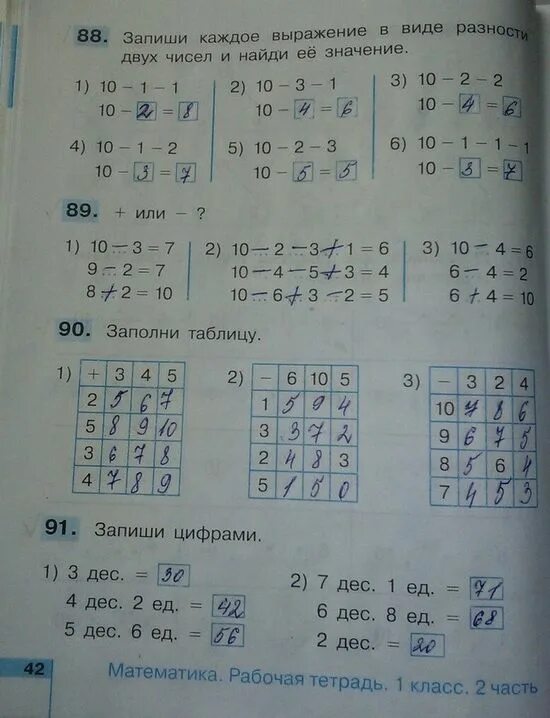 88. Запиши каждое выражение в виде разности
двух чисел и найди её значение.
1) 10 − 1 − 1 2) 10 − 3 − 1 3) 10 − 2 − 2
10 − 2 = 8 10 − 4 = 6 10 − 4 = 6
4) 10 − 1 − 2 5) 10 − 2 − 3 6) 10 − 1 − 1 − 1
10 − 3 = 7 10 − 5 = 5 10 − 3 = 7
89. + или − ?
1) 10 − 3 = 7 2) 10 − 2 − 3 + 1 = 6 3) 10 − 4 = 6
9 − 2 = 7 10 − 4 − 5 + 3 = 4 6 − 4 = 2
8 + 2 = 10 10 − 6 + 3 − 2 = 5 6 + 4 = 10
90. Заполни таблицу.
1) + 3 4 5 2) − 6 10 5 3) − 3 2 4
2 5 6 7 1 5 9 4 10 7 8 6
5 8 9 10 3 3 7 2 9 6 7 5
3 6 7 8 2 4 8 3 8 5 6 4
4 7 8 9 5 1 5 0 7 4 5 3
91. Запиши цифрами.
1) 3 дес. = 30 2) 7 дес. 1 ед. = 71
4 дес. 2 ед. = 42 6 дес. 8 ед. = 68
5 дес. 6 ед. = 56 2 дес. = 20
42 Математика. Рабочая тетрадь. 1 класс. 2 часть